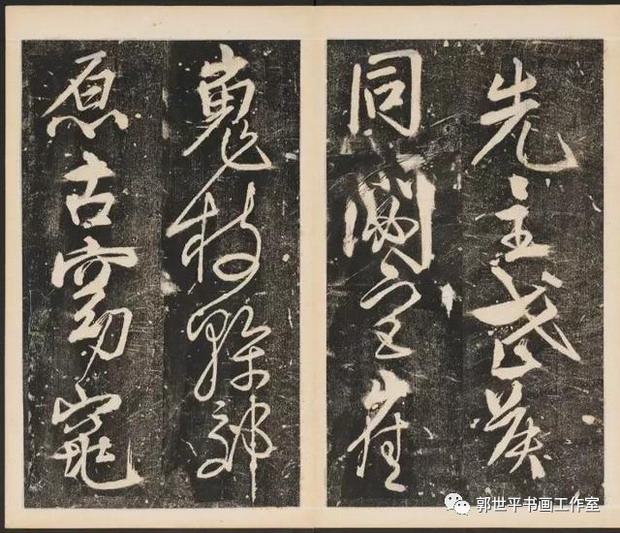 先主武侯
同閟宮崔
嵬枝幹郊
原古窈窕
郭世平书画工作室